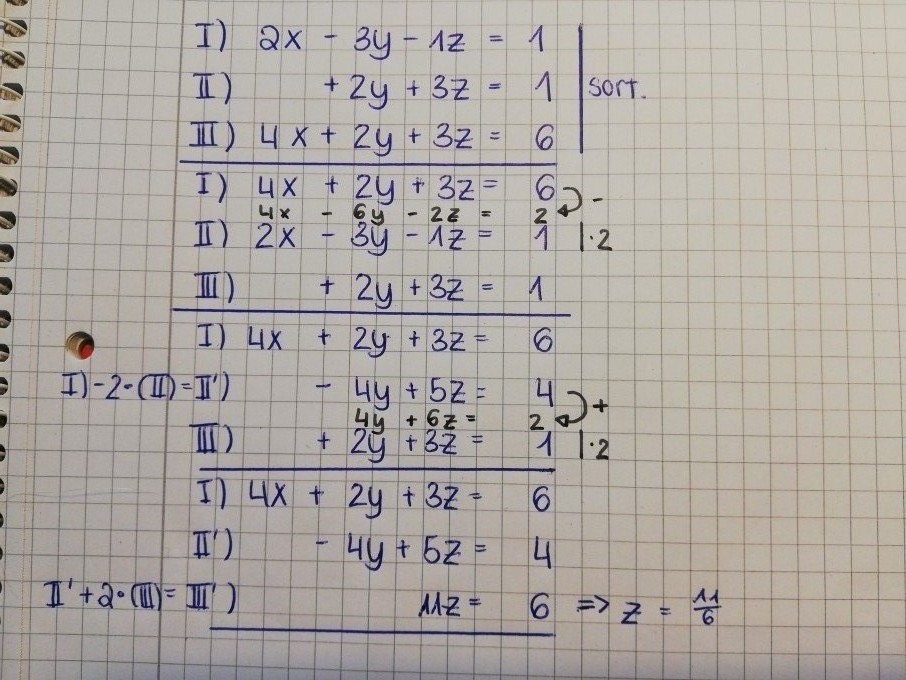 I) 2x - 3y - 1z = 1
II) + 2y + 3z = 1 | sort.
III) 4x + 2y + 3z = 6
I) 4x + 2y + 3z = 6 -
4x - 6y - 2z = 2
II) 2x - 3y - 1z = 1 | ·2
III) + 2y + 3z = 1
I) 4x + 2y + 3z = 6
I) - 2·(II) = II') - 4y + 5z = 4 +
4y + 6z = 2
III) + 2y + 3z = 1 | ·2
I) 4x + 2y + 3z = 6
II') - 4y + 5z = 4
II' + 2·(III) = III') 11z = 6 => z = 11/6